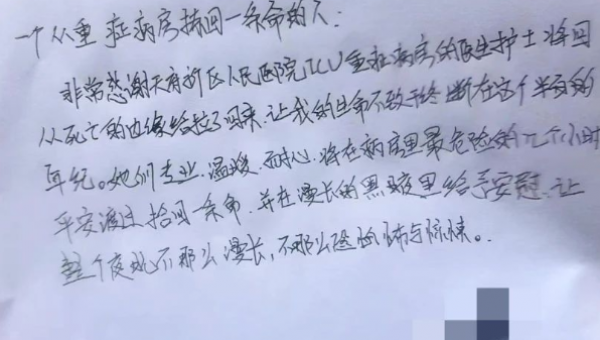 一个从重症病房捡回一条命的人：
非常感谢天府新区人民医院ICU重症病房的医生护士将我
从死亡的边缘给拉了回来，让我的生命不致于终断在这个半百的
年纪。她们专业、温暖、耐心，将在病房里最危险的几个小时
平安渡过拾回一条命，并在漫长的黑夜里给予安慰，让
整个夜晚不那么漫长，不那么恐怖与惊悚。